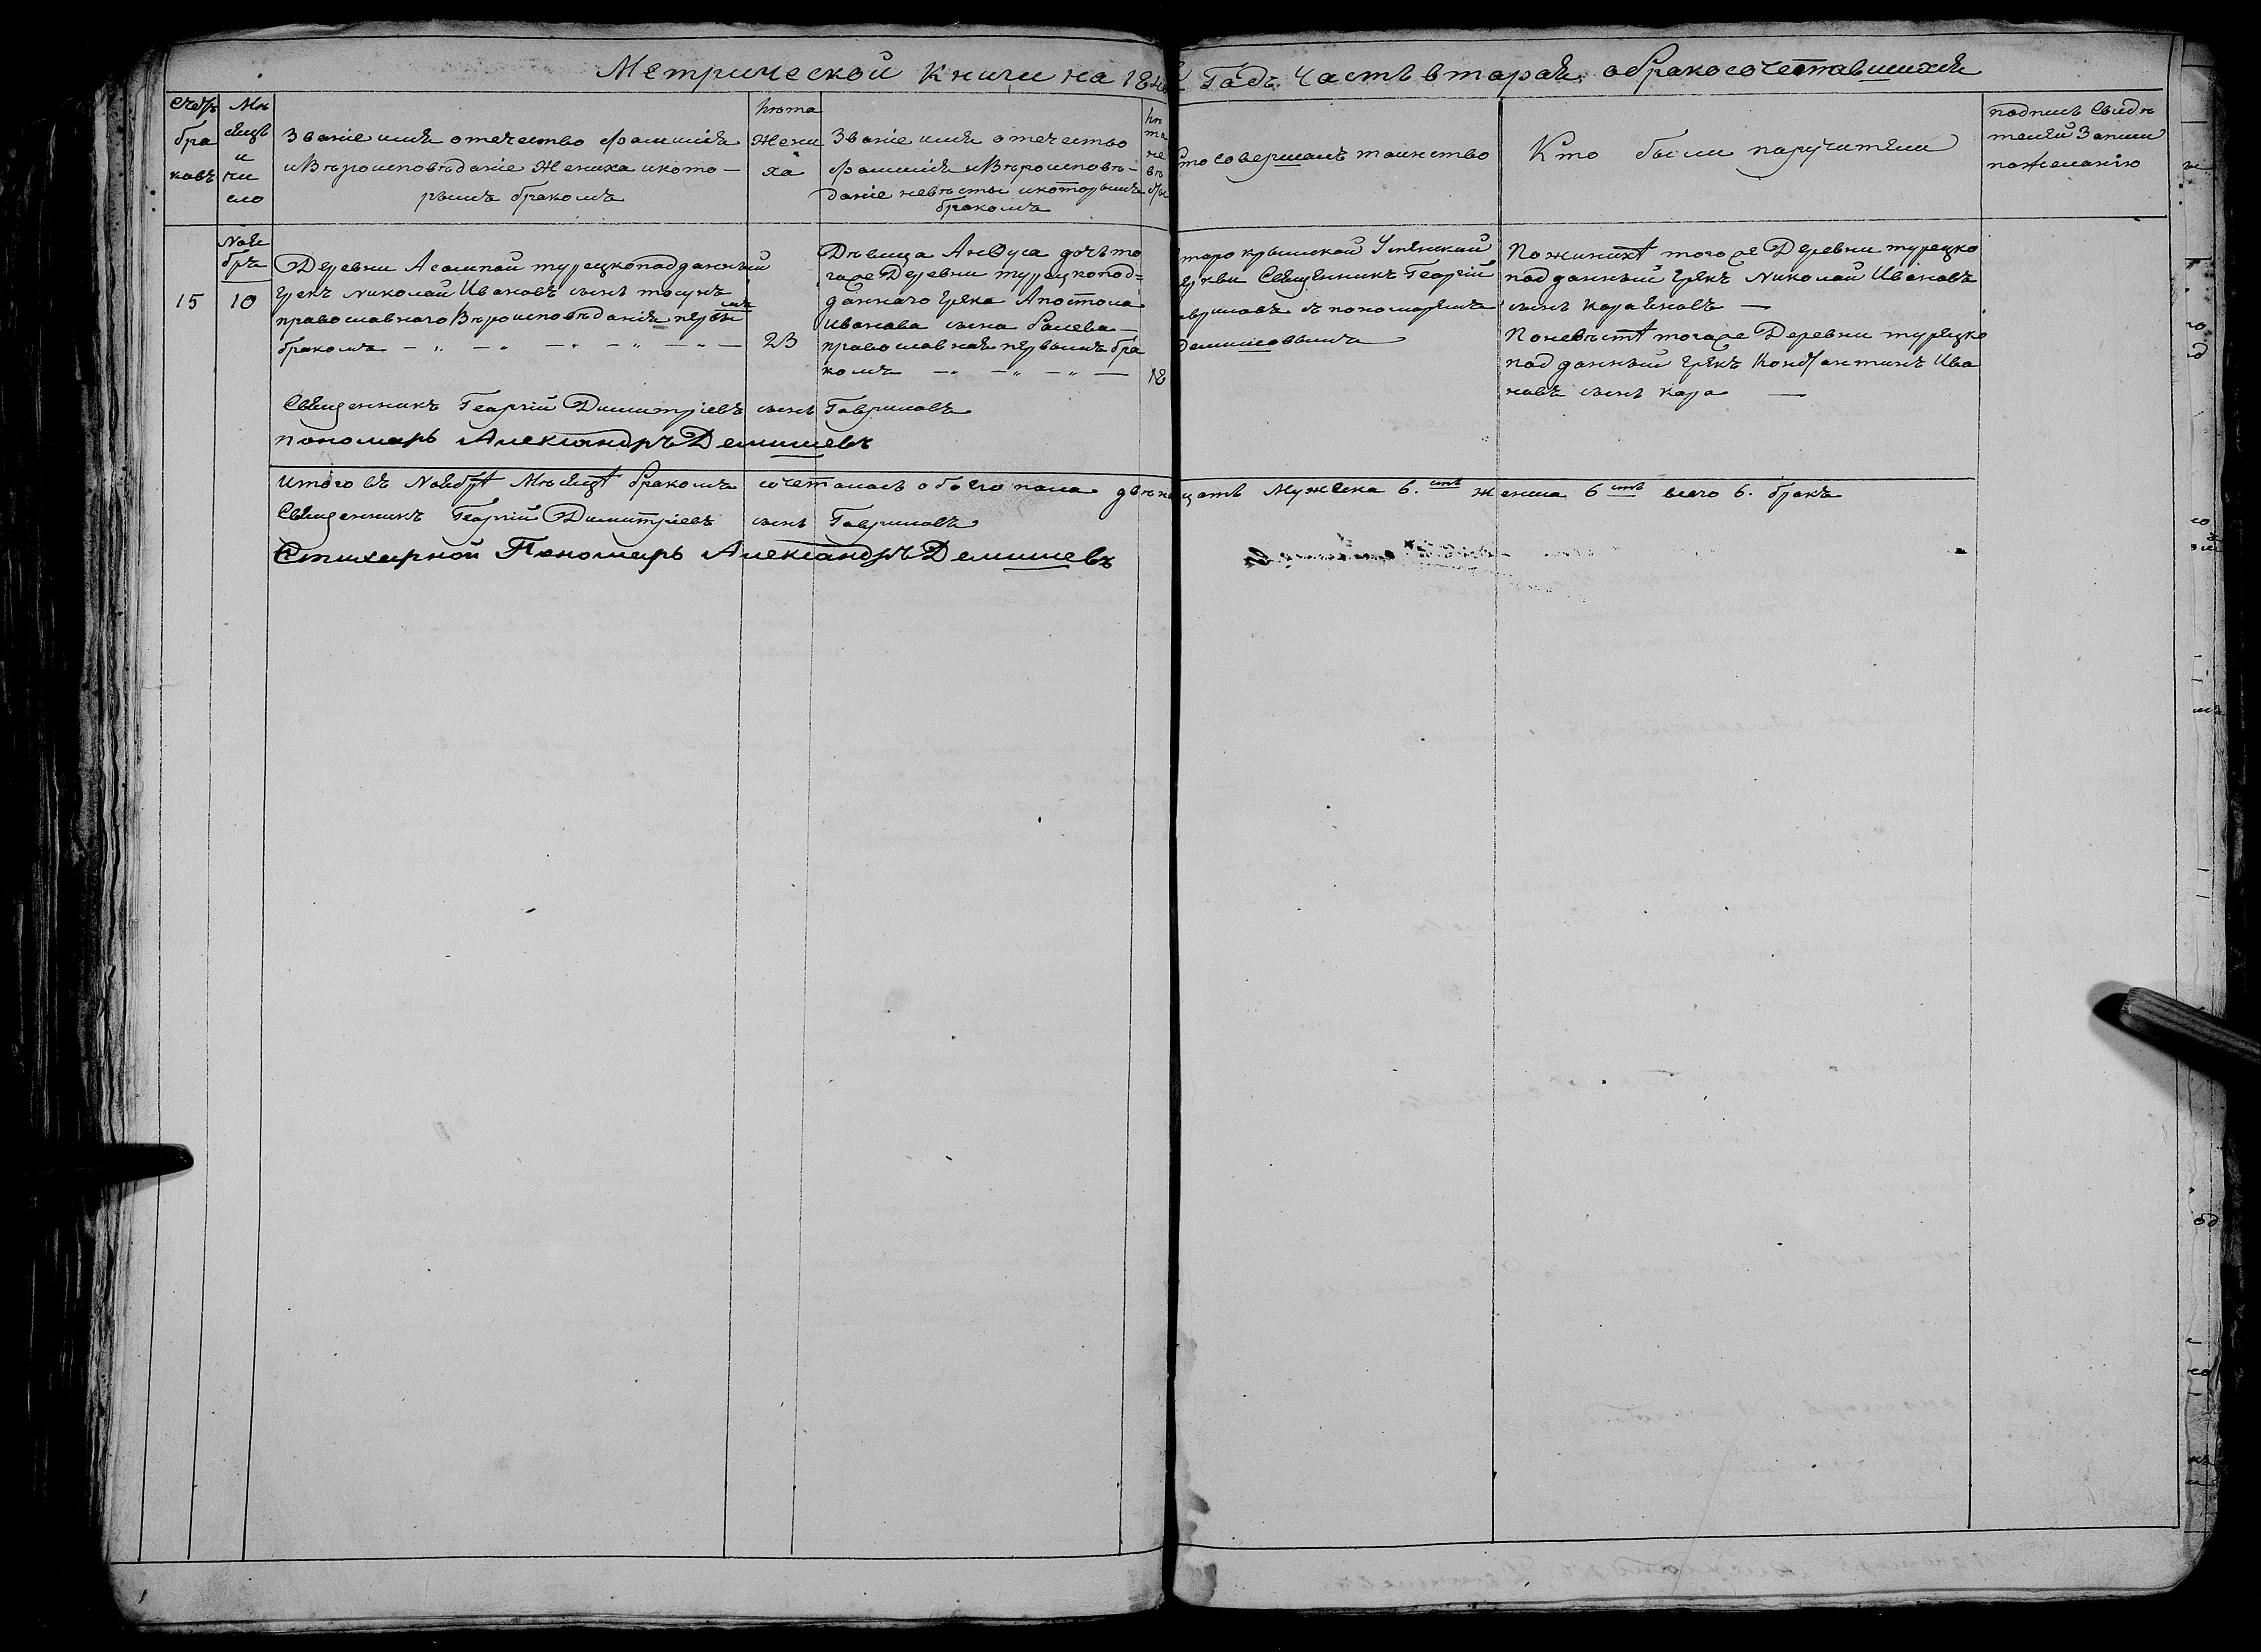 Метрической Книги на 184
Годъ. Часть вторая. обракосочетавшихся
Счотъ
бра
ковъ
Мѣ
сяцъ
и
чи
сло
Званіе имя отечество фамилія
иВѣроисповѣданіе Жениха икото-
рымъ бракомъ
Лѣта
Жени
ха
Званіе имя отечество
Фамилія иВѣроисповѣ-
даніе невѣсты икоторымъ
бракомъ
Лѣ
та
не
вѣ
сты
Кто совершалъ таинство
Кто были паручители
подпись Свидѣ
телей Записи
пожеланію
15
Ноя
бръ
10
Деревни Асампай турецкоподданный
Грекъ Николай Ивановъ сынъ тосунъ
православнаго Вѣроисповѣданія первы
мъ
бракомъ
23
Дѣвица Анθуса дочь то
гоже Деревни турецкопод=
даннаго Грека Апостола
иванова сына Ралева
православная первымъ бра
комъ
18
таро крымской Успенской
еркви Священникъ Георгій
авриловъ съ пономаремъ
Демишовымъ
Поженихѣ тогоже Деревни турецко
подданный Грекъ Николай Ивановъ
сынъ Караяновъ
Поневѣстѣ тогоже Деревни турецко
подданный Грекъ Константинъ Ива
новъ сынъ Кара
Священникъ Георгій Димитріевъ сынъ Гавриловъ
пономарь Александръ Демишевъ
Итого въ Ноябрѣ Мѣсяцѣ бракомъ сочеталось обоего пола двѣнацать Мужска 6.сть женска 6 сть всего 6. бракъ
Священникъ Георгій Димитріевъ сынъ Гавриловъ
Стихарной Пономарь Александръ Демишевъ